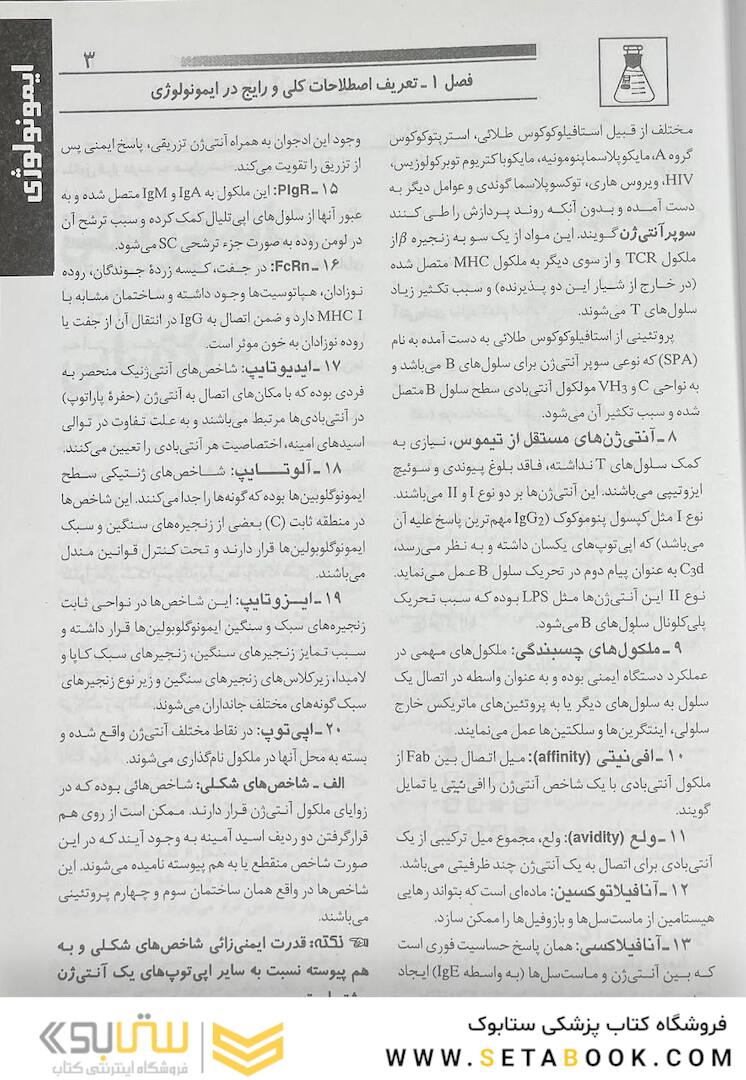 ایمونولوژی
۳
فصل ۱ ـ تعریف اصطلاحات کلی و رایج در ایمونولوژی
مختلف از قبیل استافیلوکوکوس طلائی، استرپتوکوکوس
گروه A، مایکوپلاسماپنومونیه، مایکوباکتریوم توبرکولوزیس،
HIV، ویروس هاری، توکسوپلاسما گوندی و عوامل دیگر به
دست آمده و بدون آنکه روند پردازش را طی کنند
سوپرآنتی‌ژن گویند. این مواد از یک سو به زنجیره β از
ملکول TCR و از سوی دیگر به ملکول MHC متصل شده
(در خارج از شیار این دو پذیرنده) و سبب تکثیر زیاد
سلول‌های T می‌شوند.
پروتئینی از استافیلوکوکوس طلائی به دست آمده به نام
(SPA) که نوعی سوپر آنتی‌ژن برای سلول‌های B می‌باشد و
به نواحی C و VH3 مولکول آنتی‌بادی سطح سلول B متصل
شده و سبب تکثیر آن می‌شود.
۸ ـ آنتی‌ژن‌های مستقل از تیموس، نیازی به
کمک سلول‌های T نداشته، فاقد بلوغ پیوندی و سوئیچ
ایزوتیپی می‌باشند. این آنتی‌ژن‌ها بر دو نوع I و II می‌باشند.
نوع I مثل کپسول پنوموکوک (IgG2 مهم‌ترین پاسخ علیه آن
می‌باشد) که اپی‌توپ‌های یکسان داشته و به نظر می‌رسد،
C3d به عنوان پیام دوم در تحریک سلول B عمل می‌نماید.
نوع II این آنتی‌ژن‌ها مثل LPS بوده که سبب تحریک
پلی‌کلونال سلول‌های B می‌شود.
۹ ـ ملکول‌های چسبندگی: ملکول‌های مهمی در
عملکرد دستگاه ایمنی بوده و به عنوان واسطه در اتصال یک
سلول به سلول‌های دیگر یا به پروتئین‌های ماتریکس خارج
سلولی، اینتگرین‌ها و سلکتین‌ها عمل می‌نمایند.
۱۰ ـ افی‌نیتی (affinity): میل اتصال بین Fab از
ملکول آنتی‌بادی با یک شاخص آنتی‌ژن را افی‌نیتی یا تمایل
گویند.
۱۱ ـ ولع (avidity): ولع، مجموع میل ترکیبی از یک
آنتی‌بادی برای اتصال به یک آنتی‌ژن چند ظرفیتی می‌باشد.
۱۲ ـ آنافیلاتوکسین: ماده‌ای است که بتواند رهایی
هیستامین از ماست‌سل‌ها و بازوفیل‌ها را ممکن سازد.
۱۳ ـ آنافیلاکسی: همان پاسخ حساسیت فوری است
که بین آنتی‌ژن و ماست‌سل‌ها (به واسطه IgE) ایجاد
وجود این ادجوان به همراه آنتی‌ژن تزریقی، پاسخ ایمنی پس
از تزریق را تقویت می‌کند.
۱۵ ـ PIgR: این ملکول به IgA و IgM متصل شده و به
عبور آنها از سلول‌های اپی‌تلیال کمک کرده و سبب ترشح آن
در لومن روده به صورت جزء ترشحی SC می‌شود.
۱۶ ـ FcRn: در جفت، کیسه زردهٔ جوندگان، روده
نوزادان، هپاتوسیت‌ها وجود داشته و ساختمان مشابه با
MHC I دارد و ضمن اتصال به IgG در انتقال آن از جفت یا
روده نوزادان به خون موثر است.
۱۷ ـ ایدیوتایپ: شاخص‌های آنتی‌ژنیک منحصر به
فردی بوده که با مکان‌های اتصال به آنتی‌ژن (حفرهٔ پاراتوپ)
در آنتی‌بادی‌ها مرتبط می‌باشند و به علت تفاوت در توالی
اسیدهای امینه، اختصاصیت هر آنتی‌بادی را تعیین می‌کنند.
۱۸ ـ آلوتایپ: شاخص‌های ژنتیکی سطح
ایمونوگلوبین‌ها بوده که گونه‌ها را جدا می‌کنند. این شاخص‌ها
در منطقه ثابت (C) بعضی از زنجیره‌های سنگین و سبک
ایمونوگلوبولین‌ها قرار دارند و تحت کنترل قوانین مندل
می‌باشند.
۱۹ ـ ایزوتایپ: این شاخص‌ها در نواحی ثابت
زنجیره‌های سبک و سنگین ایمونوگلوبولین‌ها قرار داشته و
سبب تمایز زنجیرهای سنگین، زنجیرهای سبک کاپا و
لامبدا، زیرکلاس‌های زنجیرهای سنگین و زیر نوع زنجیرهای
سبک گونه‌های مختلف جانداران می‌شوند.
۲۰ ـ اپی‌توپ: در نقاط مختلف آنتی‌ژن واقع شده و
بسته به محل آنها در ملکول نام‌گذاری می‌شوند.
الف ـ شاخص‌های شکلی: شاخص‌هائی بوده که در
زوایای ملکول آنتی‌ژن قرار دارند. ممکن است از روی هم
قرارگرفتن دو ردیف اسید آمینه به وجود آیند که در این
صورت شاخص منقطع یا به هم پیوسته نامیده می‌شوند. این
شاخص‌ها در واقع همان ساختمان سوم و چهارم پروتئینی
می‌باشند.
نکته: قدرت ایمنی‌زائی شاخص‌های شکلی و به
هم پیوسته نسبت به سایر اپی‌توپ‌های یک آنتی‌ژن
فروشگاه کتاب پزشکی ستابوک
WWW.SETABOOK.COM
ستابوک
فروشگاه اینترنتی کتاب